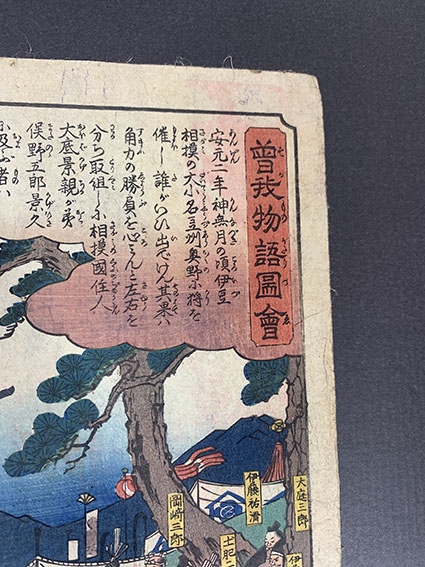 曾我物語圖會
安元二年神無月の頃伊豆
相模の大小名豆州奥野に狩を
催し誰がいひ出でけん其果ハ
角力の勝負を心ミんと左右を
分ち取組しに相模國住人
大庭景親が弟
俣野五郎景久
に及ぶ者ハ
大庭三郎
伊藤祐清
岡崎三郎
土肥二
伊